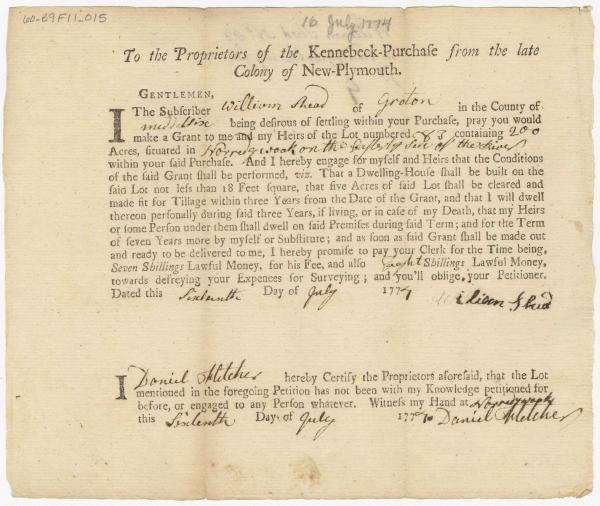 60-B9F11_015
16 July 1774
To the Proprietors of the Kennebeck-Purchaſe from the late
Colony of New-Plymouth.
GENTLEMEN,
I The Subſcriber William Shead of Groton in the County of
middlesix being deſirous of ſettling within your Purchaſe, pray you would
make a Grant to me and my Heirs of the Lot numbered 83 containing 200
Acres, ſituated in Norredgwook on the Eaſterly Side of the River
within your ſaid Purchaſe. And I hereby engage for myſelf and Heirs that the Conditions
of the ſaid Grant ſhall be performed, viz. That a Dwelling-Houſe ſhall be built on the
ſaid Lot not leſs than 18 Feet ſquare, that five Acres of ſaid Lot ſhall be cleared and
made fit for Tillage within three Years from the Date of the Grant, and that I will dwell
thereon perſonally during ſaid three Years, if living, or in caſe of my Death, that my Heirs
or ſome Perſon under them ſhall dwell on ſaid Premiſes during ſaid Term; and for the Term
of ſeven Years more by myſelf or Subſtitute; and as ſoon as ſaid Grant ſhall be made out
and ready to be delivered to me, I hereby promiſe to pay your Clerk for the Time being,
Seven Shillings Lawful Money, for his Fee, and alſo Eaght Shillings Lawful Money,
towards defreying your Expences for Surveying; and you'll oblige your Petitioner.
Dated this Sixteenth Day of July 1774 William Shead
I Daniel Fletcher hereby Certify the Proprietors aforeſaid, that the Lot
mentioned in the foregoing Petition has not been with my Knowledge petitioned for
before, or engaged to any Perſon whatever. Witneſs my Hand at Norredgwook
this Sixteenth Day of July 1774 Daniel Fletcher